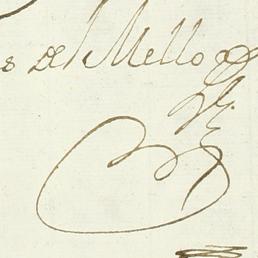 s de Mello